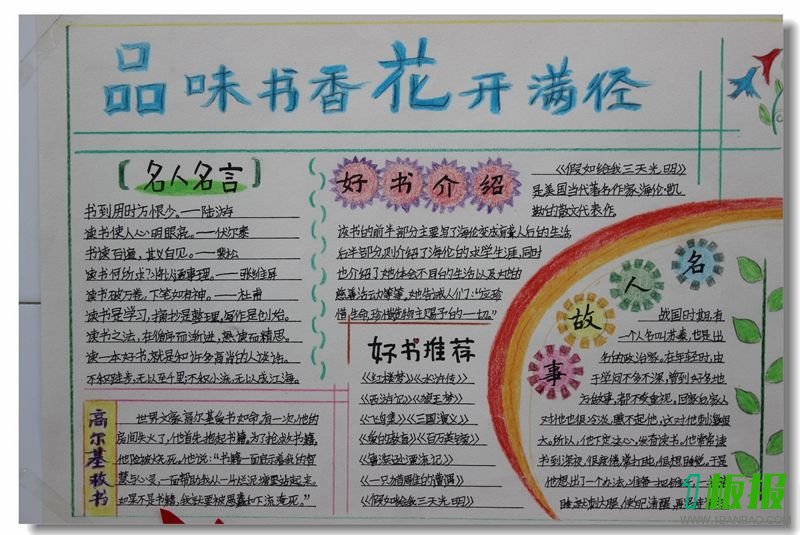 品味书香花开满径
名人名言
书到用时方恨少。——陆游
读书使人心明眼亮。——伏尔泰
书读百遍,其义自见。——裴松
读书何所求?将以通事理。——张维屏
读书破万卷,下笔如有神。——杜甫
读书是学习,摘抄是整理,写作是创造。
读书之法,在循序而渐进,熟读而精思。
读一本好书,就是和许多高尚的人谈话。
不积跬步,无以至千里;不积小流,无以成江海。
好书介绍
《假如给我三天光明》
是美国当代著名作家海伦·凯
勒的散文代表作。
该书的前半部分主要写了海伦变成盲聋人后的生活,
后半部分则介绍了海伦的求学生涯,同时
也介绍了她体会不同的生活以及她的
慈善活动等等,她告诫人们:“应珍
惜生命,珍惜造物主赐予的一切。”
好书推荐
《红楼梦》《水浒传》
《西游记》《狼王梦》
《飞鸟集》《三国演义》
《爱的教育》《百万英镑》
《鲁滨逊漂流记》
《一只猎雕的遭遇》
《假如给我三天光明》
高尔基救书
世界文豪高尔基爱书如命,有一次,他的
房间失火了,他首先抱起书籍,为了抢救书籍,
他险被烧死。他说:“书籍一面启示着我的智
慧与心灵,一面帮助我从一片烂泥塘里站起来,
如果不是书籍,我就要被愚蠢和下流淹死。”
名人故事
战国时期,有
一个人名叫苏秦,也是出
名的政治家。在年轻时,由
于学问不多不深,曾到好多地
方做事,都不受重视。回家后家人
对他也很冷淡,瞧不起他,这对他刺激很
大。所以,他下定决心,发奋读书。他常常读
书到深夜,很疲倦,常打盹,很想睡觉,于是
他想出了一个办法,准备一把锥子,一
睡就刺大腿,使自己清醒,再
1板报
WWW.1BANBAO.COM